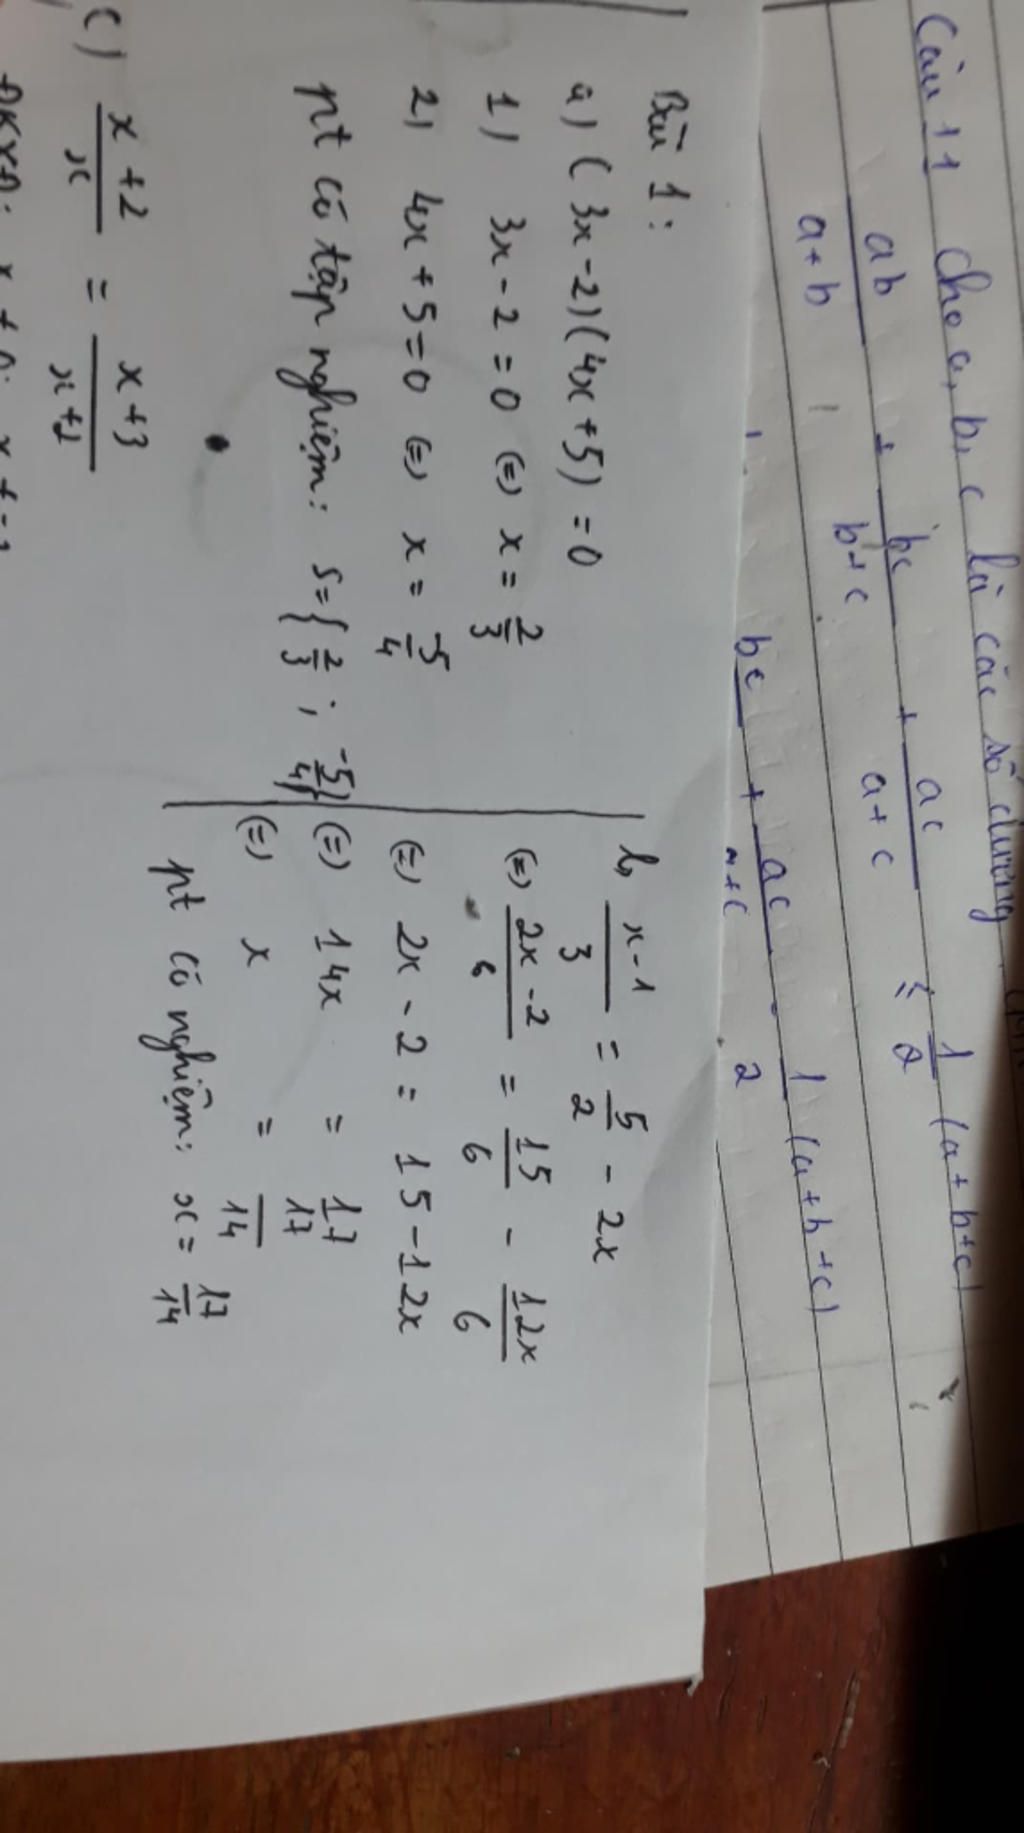 Câu 11 Cho a, b, c là các số dương
ab/a+b + bc/b+c + ac/a+c ≤ 1/2 (a+b+c)
bc + ac/a+c 1/2 (a+b+c)
Bài 1:
a) (3x-2)(4x+5) = 0
1) 3x-2=0 (=) x = 2/3
2) 4x+5=0 (=) x = -5/4
pt có tập nghiệm: S={2/3 ; -5/4}
b, x-1/3 = 5/2 - 2x
(=) 2x-2/6 = 15/6 - 12x/6
(=) 2x-2 = 15-12x
(=) 14x = 17
(=) x = 17/14
pt có nghiệm: x = 17/14
c) x+2/x = x+3/x+1